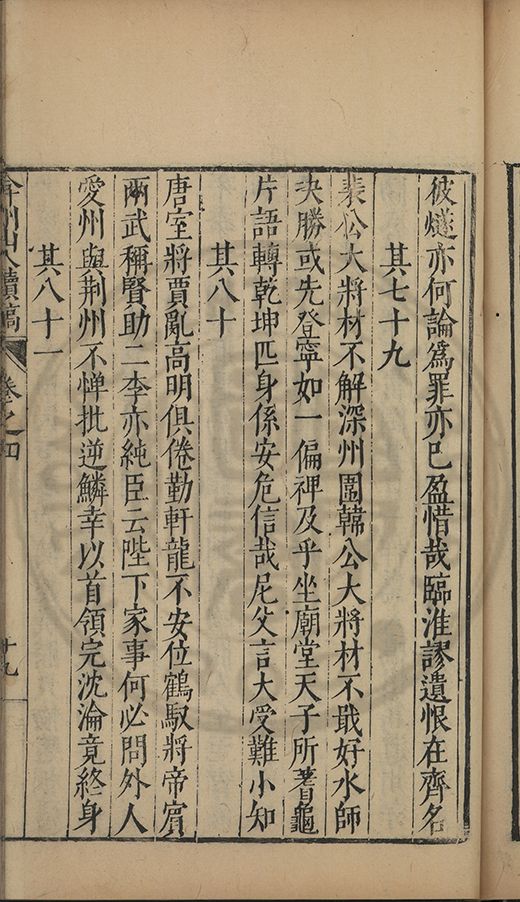 彼燧亦何論為罪亦已盈惜哉臨淮謬遺恨在齊名
其七十九
裴公大將材不解深州圍韓公大將材不戢好水師
决勝或先登寧如一偏裨及乎坐廟堂天子所蓍龜
片語轉乾坤匹身係安危信哉尼父言大受難小知
其八十
唐室將賈亂高明俱倦勤軒龍不安位鶴馭將帝賓
兩武稱賢助二李亦純臣云陛下家事何必問外人
愛州與荆州不憚批逆鱗幸以首領完沈淪竟終身
其八十一
弇州山人續稿 卷之四 十九